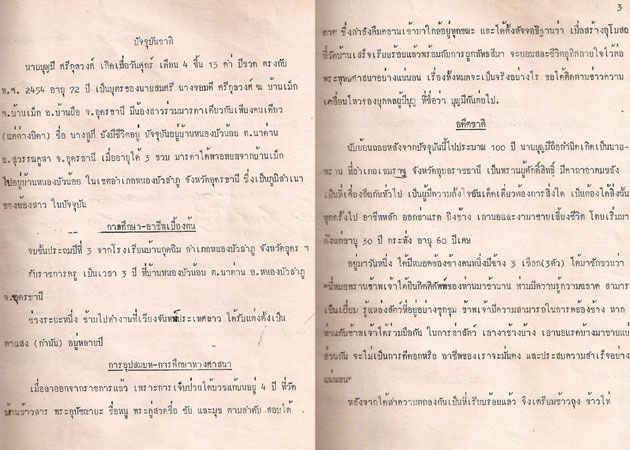 ปัจจุบันชาติ
นายบุญมี ศรีกุลวงศ์ เกิดเมื่อวันศุกร์ เดือน 4 ขึ้น 15 ค่ำ ปีขาล ตรงกับ
พ.ศ. 2454 อายุ 72 ปี เป็นบุตรของนายสมศรี นางจอมศรี ศรีกุลวงศ์ ณ บ้านเม็ก
ต.บ้านเม็ก อ.บ้านผือ จ.อุดรธานี มีน้องสาวร่วมมารดาเดียวกันเพียงคนเดียว
(แต่ต่างบิดา) ชื่อ นางสูตี ยังมีชีวิตอยู่ ปัจจุบันอยู่บ้านหนองบัวน้อย ต.นาด่าน
อ.สุวรรณคูหา จ.อุดรธานี เมื่ออายุได้ 3 ขวบ มารดาได้พาอพยพจากบ้านเม็ก
ไปอยู่บ้านหนองบัวน้อย ในเขตอำเภอหนองบัวลำภู จังหวัดอุดรธานี ซึ่งเป็นภูมิลำเนา
ของน้องสาว ในปัจจุบัน
การศึกษา-อาชีพเบื้องต้น
จบชั้นประถมปีที่ 3 จากโรงเรียนบ้านกุดฉิม อำเภอหนองบัวลำภู จังหวัดอุดร ฯ
รับราชการครู เป็นเวลา 3 ปี ที่บ้านหนองบัวน้อย ต.นาด่าน อ.หนองบัวลำภู
จ.อุดรธานี
ช่วงระยะหนึ่ง ข้ามไปทำงานที่เวียงจันทน์ประเทศลาว ได้รับแต่งตั้งเป็น
ตาแสง (กำนัน) อยู่หลายปี
การอุปสมบท-การศึกษาทางศาสนา
เมื่อลาออกจากราชการแล้ว เพราะการเจ็บป่วยได้บวชแก้บนอยู่ 4 ปี ที่วัด
บ้านข้าวสาร พระอุปัชฌายะ ชื่อหนู พระคู่สวดชื่อ ชัย และมุข ตามลำดับ สอบได้
3
ตาย ซึ่งกำลังคืบคลานเข้ามาใกล้อยู่ทุกขณะ และได้ตั้งสัจจอธิฐานว่า เมื่อสร้างอุโบสถ
ที่วัดบ้านเสร็จเรียบร้อยแล้วพร้อมกับการผูกพัทธสีมา จะยอมสละชีวิตอุทิศกายใจไว้ต่อ
พระพุทธศาสนาอย่างแน่นอน เรื่องทั้งหมดจะเป็นจริงอย่างไร ขอได้ติดตามข่าวความ
เคลื่อนไหวของบุคคลผู้มีบุญ ที่ชื่อว่า บุญมีกันต่อไป.
อดีตชาติ
นับย้อนถอยหลังจากปัจจุบันนี้ไปประมาณ 100 ปี นายบุญมีถือกำเนิดเกิดเป็นนาย-
พราน ที่อำเภอเขมราฐ จังหวัดอุบลราชธานี เป็นพรานผู้ศักดิ์สิทธิ์ มีคาถาอาคมขลัง
เป็นที่เลื่องลือกันทั่วไป เป็นผู้มีความตั้งใจมั่นเด็ดเดี่ยวต้องการสิ่งใด เป็นต้องได้สิ่งนั้น
ทุกครั้งไป อาชีพหลัก ออกล่าแรด ยิงช้าง เอานอและงามาขายเลี้ยงชีวิต โดยเริ่มมา
ตั้งแต่อายุ 30 ปี กระทั่ง อายุ 60 ปีเศษ
อยู่มาวันหนึ่ง ได้มีหมอคล้องช้างคนหนึ่งมีช้าง 3 เชือก(3ตัว) ได้มาชักชวนว่า
หมอพรานข้าพเจ้าได้ยินกิตติศัพท์ของท่านมาช้านาน ท่านมีความรู้ความฉลาด สามารถ
เป็นเยี่ยม รู้แหล่งสัตว์ที่อยู่อย่างชุกชุม ข้าพเจ้ามีความสามารถในการคล้องช้าง หาก
ท่านกับข้าพเจ้าได้ร่วมมือกัน ในการล่าสัตว์ เอางาช้างบ้าง เอานอแรดบ้างมาขายแบ่ง
ส่วนกัน จะไม่เป็นการดีดอกหรือ อาชีพของเราจะมั่นคง และประสบความสำเร็จอย่าง
แน่นอน
หลังจากได้ทำความตกลงกันเป็นที่เรียบร้อยแล้ว จึงเตรียมข้าวถุง ข้าวไท้